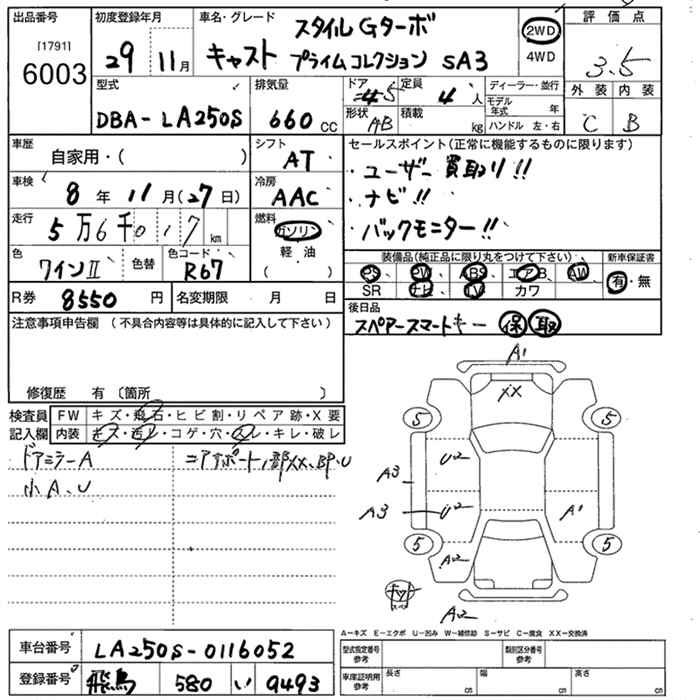 出品番号
[1791]
6003
初度登録年月
29 11月
車名・グレード
スタイル Gターボ
キャスト プライムコレクション SA3
2WD
4WD
評価点
3.5
外装 内装
C B
型式
DBA-LA250S
排気量
660 cc
ドア 定員
5 4 人
形状 積載
AB kg
ディーラー・並行
モデル年式 年
ハンドル 左・右
車歴
自家用・( )
シフト
AT
車検
8 年 11 月 (27 日)
冷房
AAC
走行
5万6千017 km
燃料
ガソリン
軽・油
( )
色
ワインⅡ
色替
色コード
R67
R券 8550 円
名変期限 月 日
セールスポイント(正常に機能するものに限ります)
・ユーザー買取り!!
・ナビ!!
・バックモニター!!
装備品(純正品に限り丸をつけて下さい)
PS、PW、ABS、エアB、AW
SR ナビ TV カワ
新車保証書
有・無
後日品
スペアースマートキー 保 取
注意事項申告欄 (不具合内容等は具体的に記入して下さい)
修復歴 有 (箇所 )
検査員記入欄
FW キズ・飛石・ヒビ割・リペア跡・X要
内装 キズ・汚レ・コゲ・穴・スレ・キレ・破レ
ドアミラーA
小A、U
コアサポート、部XX、BP、U
A1
XX
5 5
U2
A3
A3 U2
A1
5 5
A2
スペ
A2
A-キズ E-エクボ U-凹み W-補修跡 S-サビ C-腐食 XX-交換済
車台番号 LA250S-0116052
登録番号 飛鳥 580 い 9493
型式指定番号 参考
類別区分番号 参考
車庫証明用 参考
長さ cm
幅 cm
高さ cm